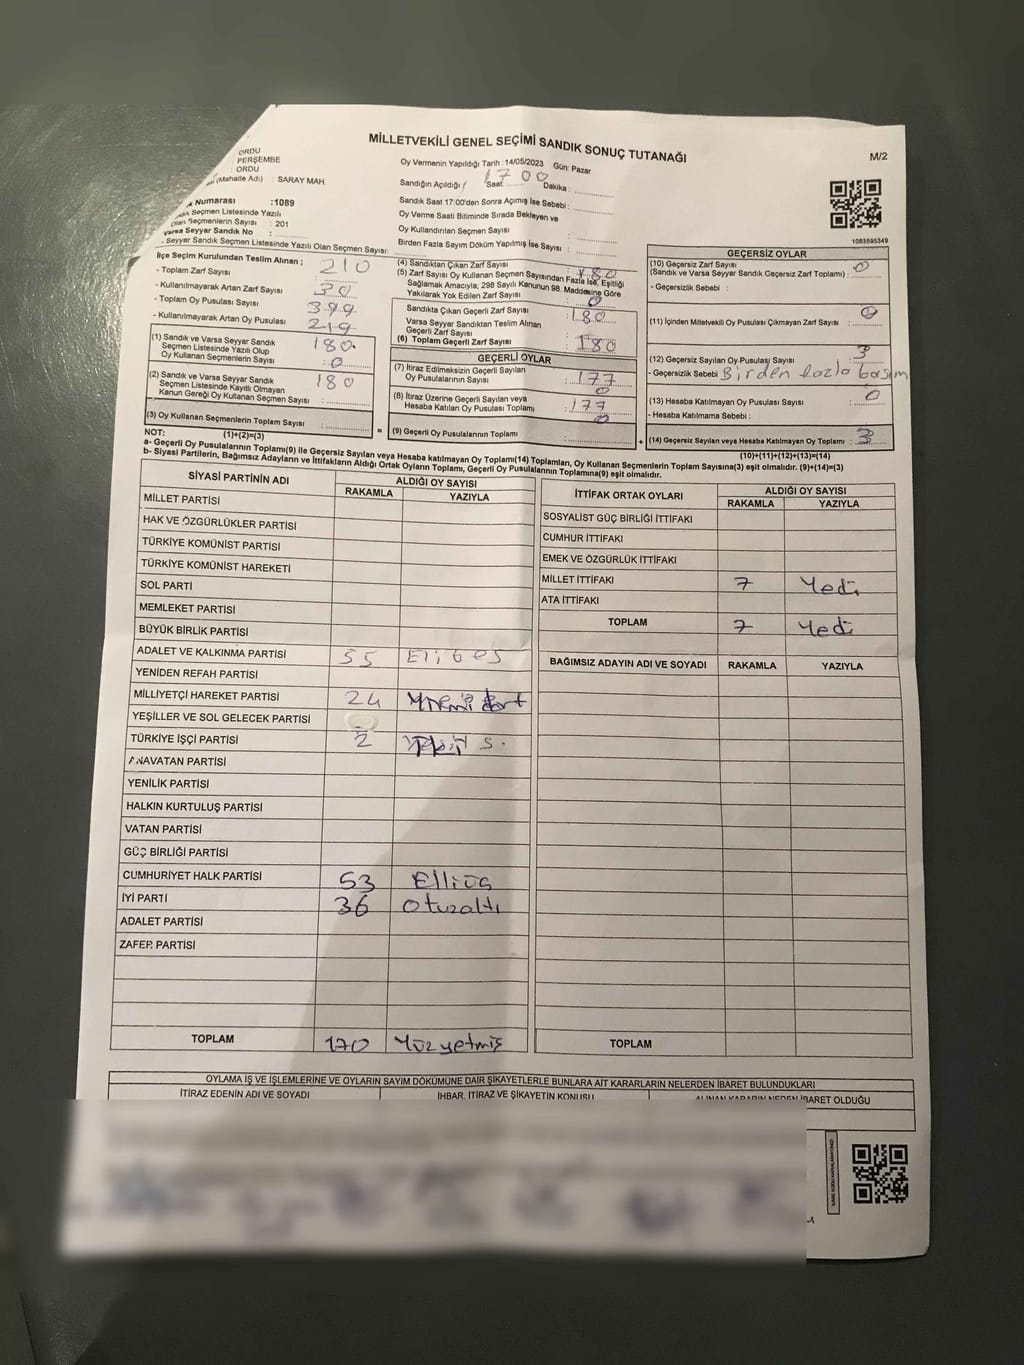 MİLLETVEKİLİ GENEL SEÇİMİ SANDIK SONUÇ TUTANAĞI
M/2
ORDU
PERŞEMBE
ORDU
(Mahalle Adı) : SARAY MAH.
Numarası :1089
Seçmen Listesinde Yazılı
Olan Seçmenlerin Sayısı : 201
Varsa Seyyar Sandık No :
- Seyyar Sandık Seçmen Listesinde Yazılı Olan Seçmen Sayısı:
Oy Vermenin Yapıldığı Tarih : 14/05/2023 Gün: Pazar
Sandığın Açıldığı / Saat: 17 00 Dakika :
Sandık Saat 17:00'den Sonra Açımış İse Sebebi :
Oy Verme Saati Bitiminde Sırada Bekleyen ve
Oy Kullandırılan Seçmen Sayısı :
Birden Fazla Sayım Döküm Yapılmış İse Sayısı :
1083595349
İlçe Seçim Kurulundan Teslim Alınan ;
- Toplam Zarf Sayısı : 210
- Kullanılmayarak Artan Zarf Sayısı : 30
- Toplam Oy Pusulası Sayısı : 399
- Kullanılmayarak Artan Oy Pusulası : 219
(1) Sandık ve Varsa Seyyar Sandık
Seçmen Listesinde Yazılı Olup
Oy Kullanan Seçmenlerin Sayısı : 180
0
(2) Sandık ve Varsa Seyyar Sandık
Seçmen Listesinde Kayıtlı Olmayan
Kanun Gereği Oy Kullanan Seçmen Sayısı : 180
(3) Oy Kullanan Seçmenlerin Toplam Sayısı :
(1)+(2)=(3)
(4) Sandıktan Çıkan Zarf Sayısı : 180
(5) Zarf Sayısı Oy Kullanan Seçmen Sayısından Fazla İse, Eşitliği
Sağlamak Amacıyla; 298 Sayılı Kanunun 98. Maddesine Göre
Yakılarak Yok Edilen Zarf Sayısı : 0
Sandıkta Çıkan Geçerli Zarf Sayısı : 180
Varsa Seyyar Sandıktan Teslim Alınan
Geçerli Zarf Sayısı :
(6) Toplam Geçerli Zarf Sayısı : 180
GEÇERLİ OYLAR
(7) İtiraz Edilmeksizin Geçerli Sayılan
Oy Pusulalarının Sayısı : 177
0
(8) İtiraz Üzerine Geçerli Sayılan veya
Hesaba Katılan Oy Pusulası Toplamı : 177
0
= (9) Geçerli Oy Pusulalarının Toplamı :
GEÇERSİZ OYLAR
(10) Geçersiz Zarf Sayısı
(Sandık ve Varsa Seyyar Sandık Geçersiz Zarf Toplamı) : 0
- Geçersizlik Sebebi :
(11) İçinden Milletvekili Oy Pusulası Çıkmayan Zarf Sayısı : 0
(12) Geçersiz Sayılan Oy Pusulası Sayısı : 3
- Geçersizlik Sebebi Birden fazla basım
(13) Hesaba Katılmayan Oy Pusulası Sayısı : 0
- Hesaba Katılmama Sebebi :
+ (14) Geçersiz Sayılan veya Hesaba Katılmayan Oy Toplamı : 3
(10)+(11)+(12)+(13)=(14)
NOT:
a- Geçerli Oy Pusulalarının Toplamı(9) ile Geçersiz Sayılan veya Hesaba katılmayan Oy Toplamı(14) Toplamları, Oy Kullanan Seçmenlerin Toplam Sayısına(3) eşit olmalıdır. (9)+(14)=(3)
b- Siyasi Partilerin, Bağımsız Adayların ve İttifakların Aldığı Ortak Oyların Toplamı, Geçerli Oy Pusulalarının Toplamına(9) eşit olmalıdır.
SİYASİ PARTİNİN ADI ALDIĞI OY SAYISI
RAKAMLA YAZIYLA
MİLLET PARTİSİ
HAK VE ÖZGÜRLÜKLER PARTİSİ
TÜRKİYE KOMÜNİST PARTİSİ
TÜRKİYE KOMÜNİST HAREKETİ
SOL PARTİ
MEMLEKET PARTİSİ
BÜYÜK BİRLİK PARTİSİ
ADALET VE KALKINMA PARTİSİ 55 Ellibeş
YENİDEN REFAH PARTİSİ
MİLLİYETÇİ HAREKET PARTİSİ 24
YEŞİLLER VE SOL GELECEK PARTİSİ
TÜRKİYE İŞÇİ PARTİSİ 2
ANAVATAN PARTİSİ
YENİLİK PARTİSİ
HALKIN KURTULUŞ PARTİSİ
VATAN PARTİSİ
GÜÇ BİRLİĞİ PARTİSİ
CUMHURİYET HALK PARTİSİ 53 Elliüç
İYİ PARTİ 36 Otuzaltı
ADALET PARTİSİ
ZAFER PARTİSİ
TOPLAM 170 Yüzyetmiş
İTTİFAK ORTAK OYLARI ALDIĞI OY SAYISI
RAKAMLA YAZIYLA
SOSYALİST GÜÇ BİRLİĞİ İTTİFAKI
CUMHUR İTTİFAKI
EMEK VE ÖZGÜRLÜK İTTİFAKI
MİLLET İTTİFAKI 7 Yedi
ATA İTTİFAKI
TOPLAM 7 Yedi
BAĞIMSIZ ADAYIN ADI VE SOYADI RAKAMLA YAZIYLA
TOPLAM
OYLAMA İŞ VE İŞLEMLERİNE VE OYLARIN SAYIM DÖKÜMÜNE DAİR ŞİKAYETLERLE BUNLARA AİT KARARLARIN NELERDEN İBARET BULUNDUKLARI
İTİRAZ EDENİN ADI VE SOYADI İHBAR, İTİRAZ VE ŞİKAYETİN KONUSU ALINAN KARARIN NEDEN İBARET OLDUĞU